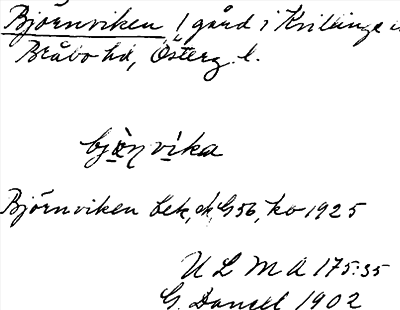 Björnviken 1 gård i Kvillinge
Bråbo hd, Österg. l.
bjö̀ṇvi̇ka
Björnviken bek, ck, G 56, ko 1925
U L M A 175:35
G. Danell 1902